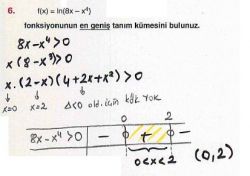 6. f(x) = ln(8x – x⁴)
fonksiyonunun en geniş tanım kümesini bulunuz.
8x-x⁴>0
x.(8-x³)>0
x.(2-x)(4+2x+x²)>0
x=0 x=2 Δ<0 old. için kök yok
0 2
8x-x⁴>0 - + -
0<x<2 (0,2)